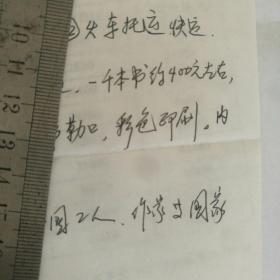 ②火车托运快运.
二.一千本书约400元左右,
勒口,彩色印刷.内
国工人、作家
10
11
12
13
14
15